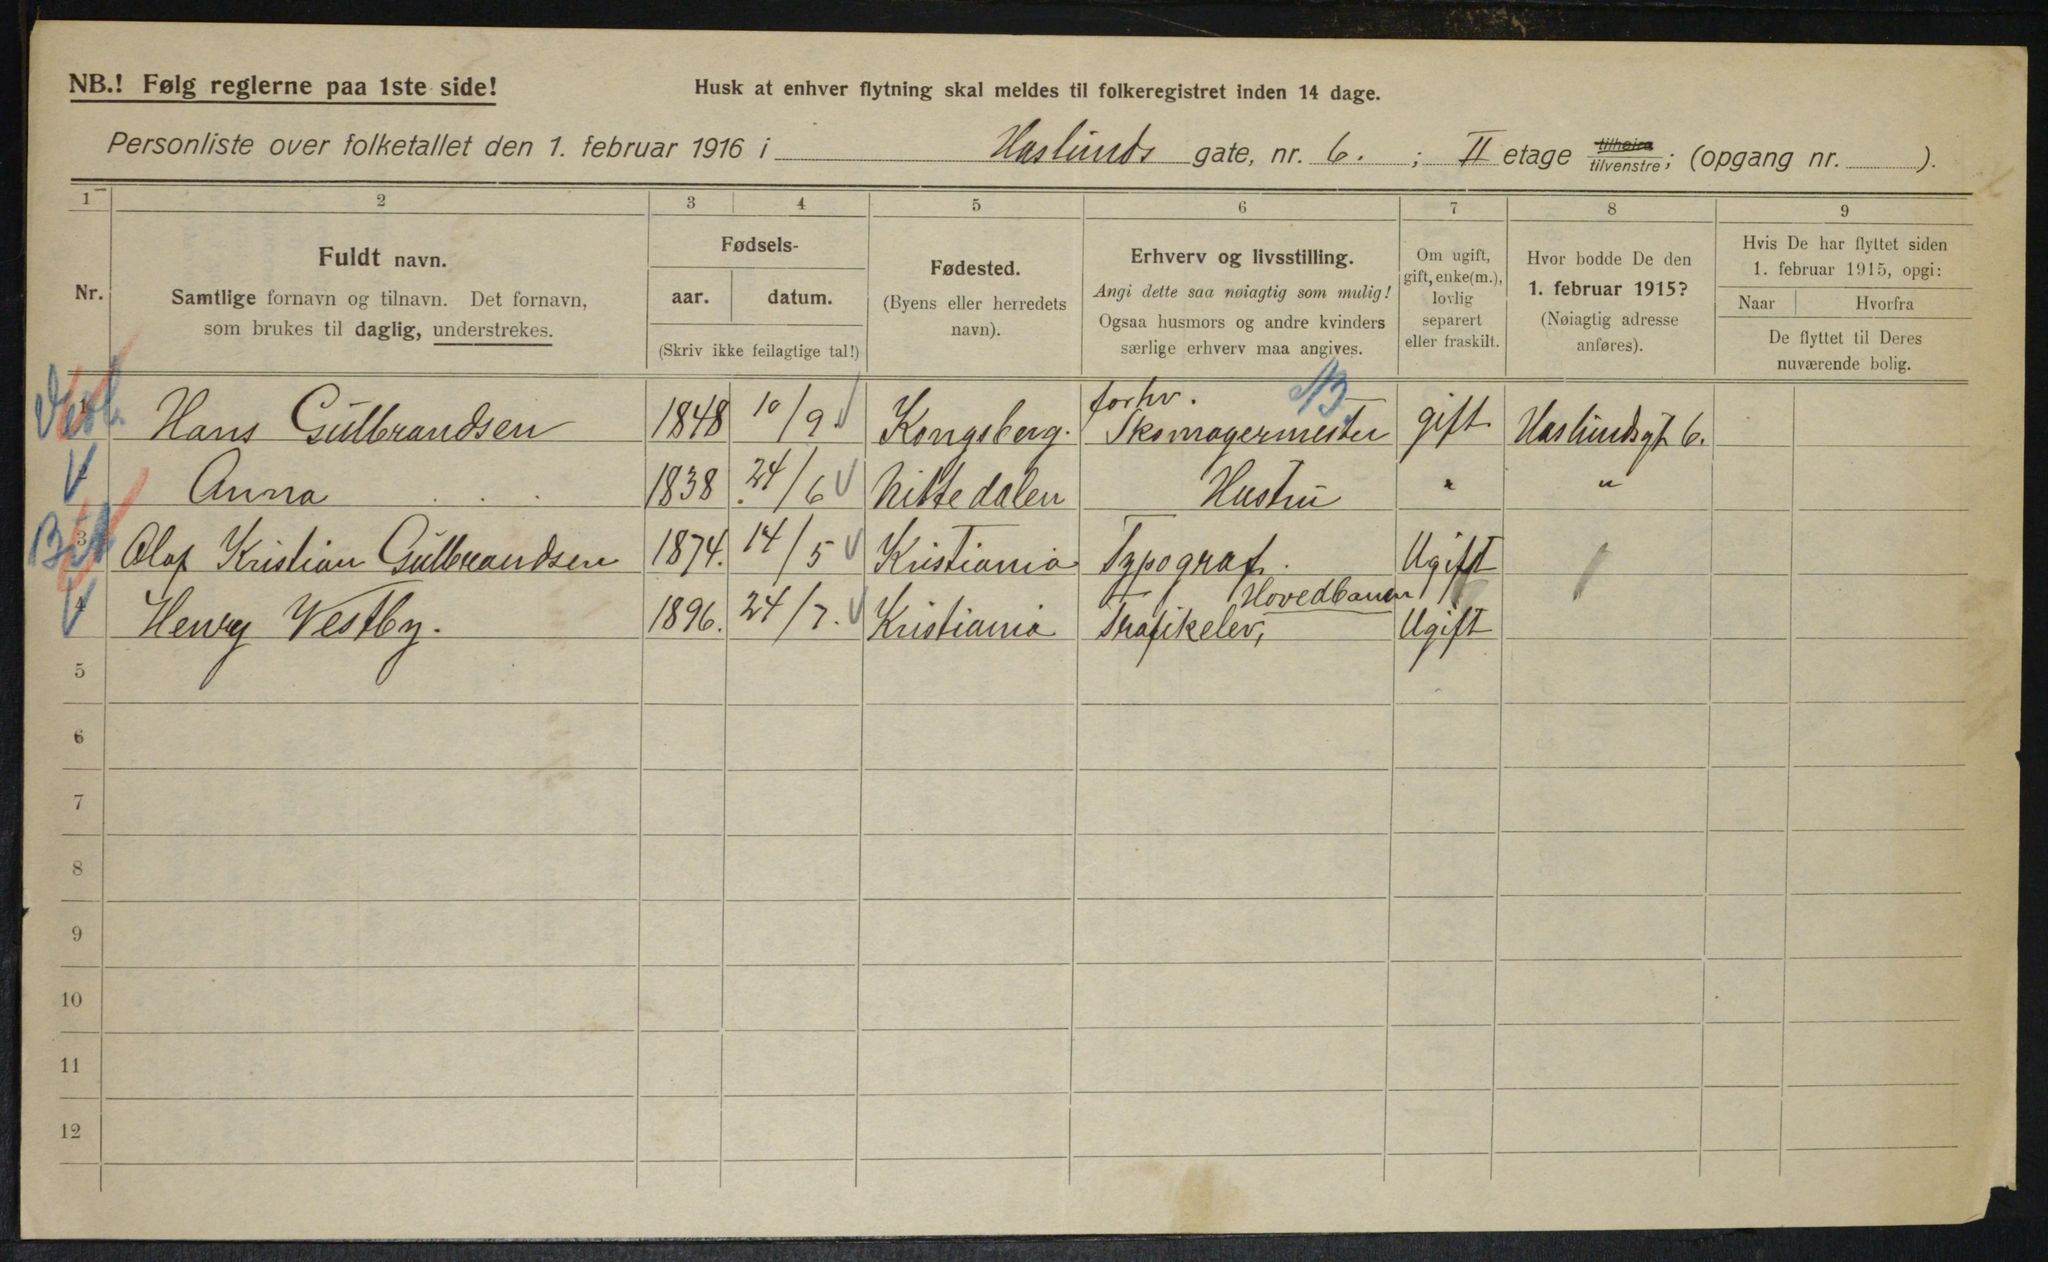 NB.! Følg reglerne paa 1ste side!
Husk at enhver flytning skal meldes til folkeregistret inden 14 dage.
Personliste over folketallet den 1. februar 1916 i Haslunds gate, nr. 6. ; II etage tilhøire tilvenstre; (opgang nr. ).
1 2 3 4 5 6 7 8 9
Nr.
Fuldt navn.
Samtlige fornavn og tilnavn. Det fornavn,
som brukes til daglig, understrekes.
Fødsels-
aar. datum.
(Skriv ikke feilagtige tal!)
Fødested.
(Byens eller herredets
navn).
Erhverv og livsstilling.
Angi dette saa nøiagtig som mulig!
Ogsaa husmors og andre kvinders
særlige erhverv maa angives.
Om ugift,
gift, enke(m.),
lovlig
separert
eller fraskilt.
Hvor bodde De den
1. februar 1915?
(Nøiagtig adresse
anføres).
Hvis De har flyttet siden
1. februar 1915, opgi:
Naar Hvorfra
De flyttet til Deres
nuværende bolig.
forhv. NB
1 Hans Gulbrandsen 1848 10/9 Kongsberg. Skomagermester gift Haslundsgt 6.
Anna 1838 24/6 Nittedalen Hustru " "
3 Olaf Kristian Gulbrandsen 1874. 14/5 Kristiania Typograf. Ugift
Hovedbanen
4 Henry Vestby. 1896. 24/7. Kristiania Trafikelev, Ugift
5
6
7
8
9
10
11
12